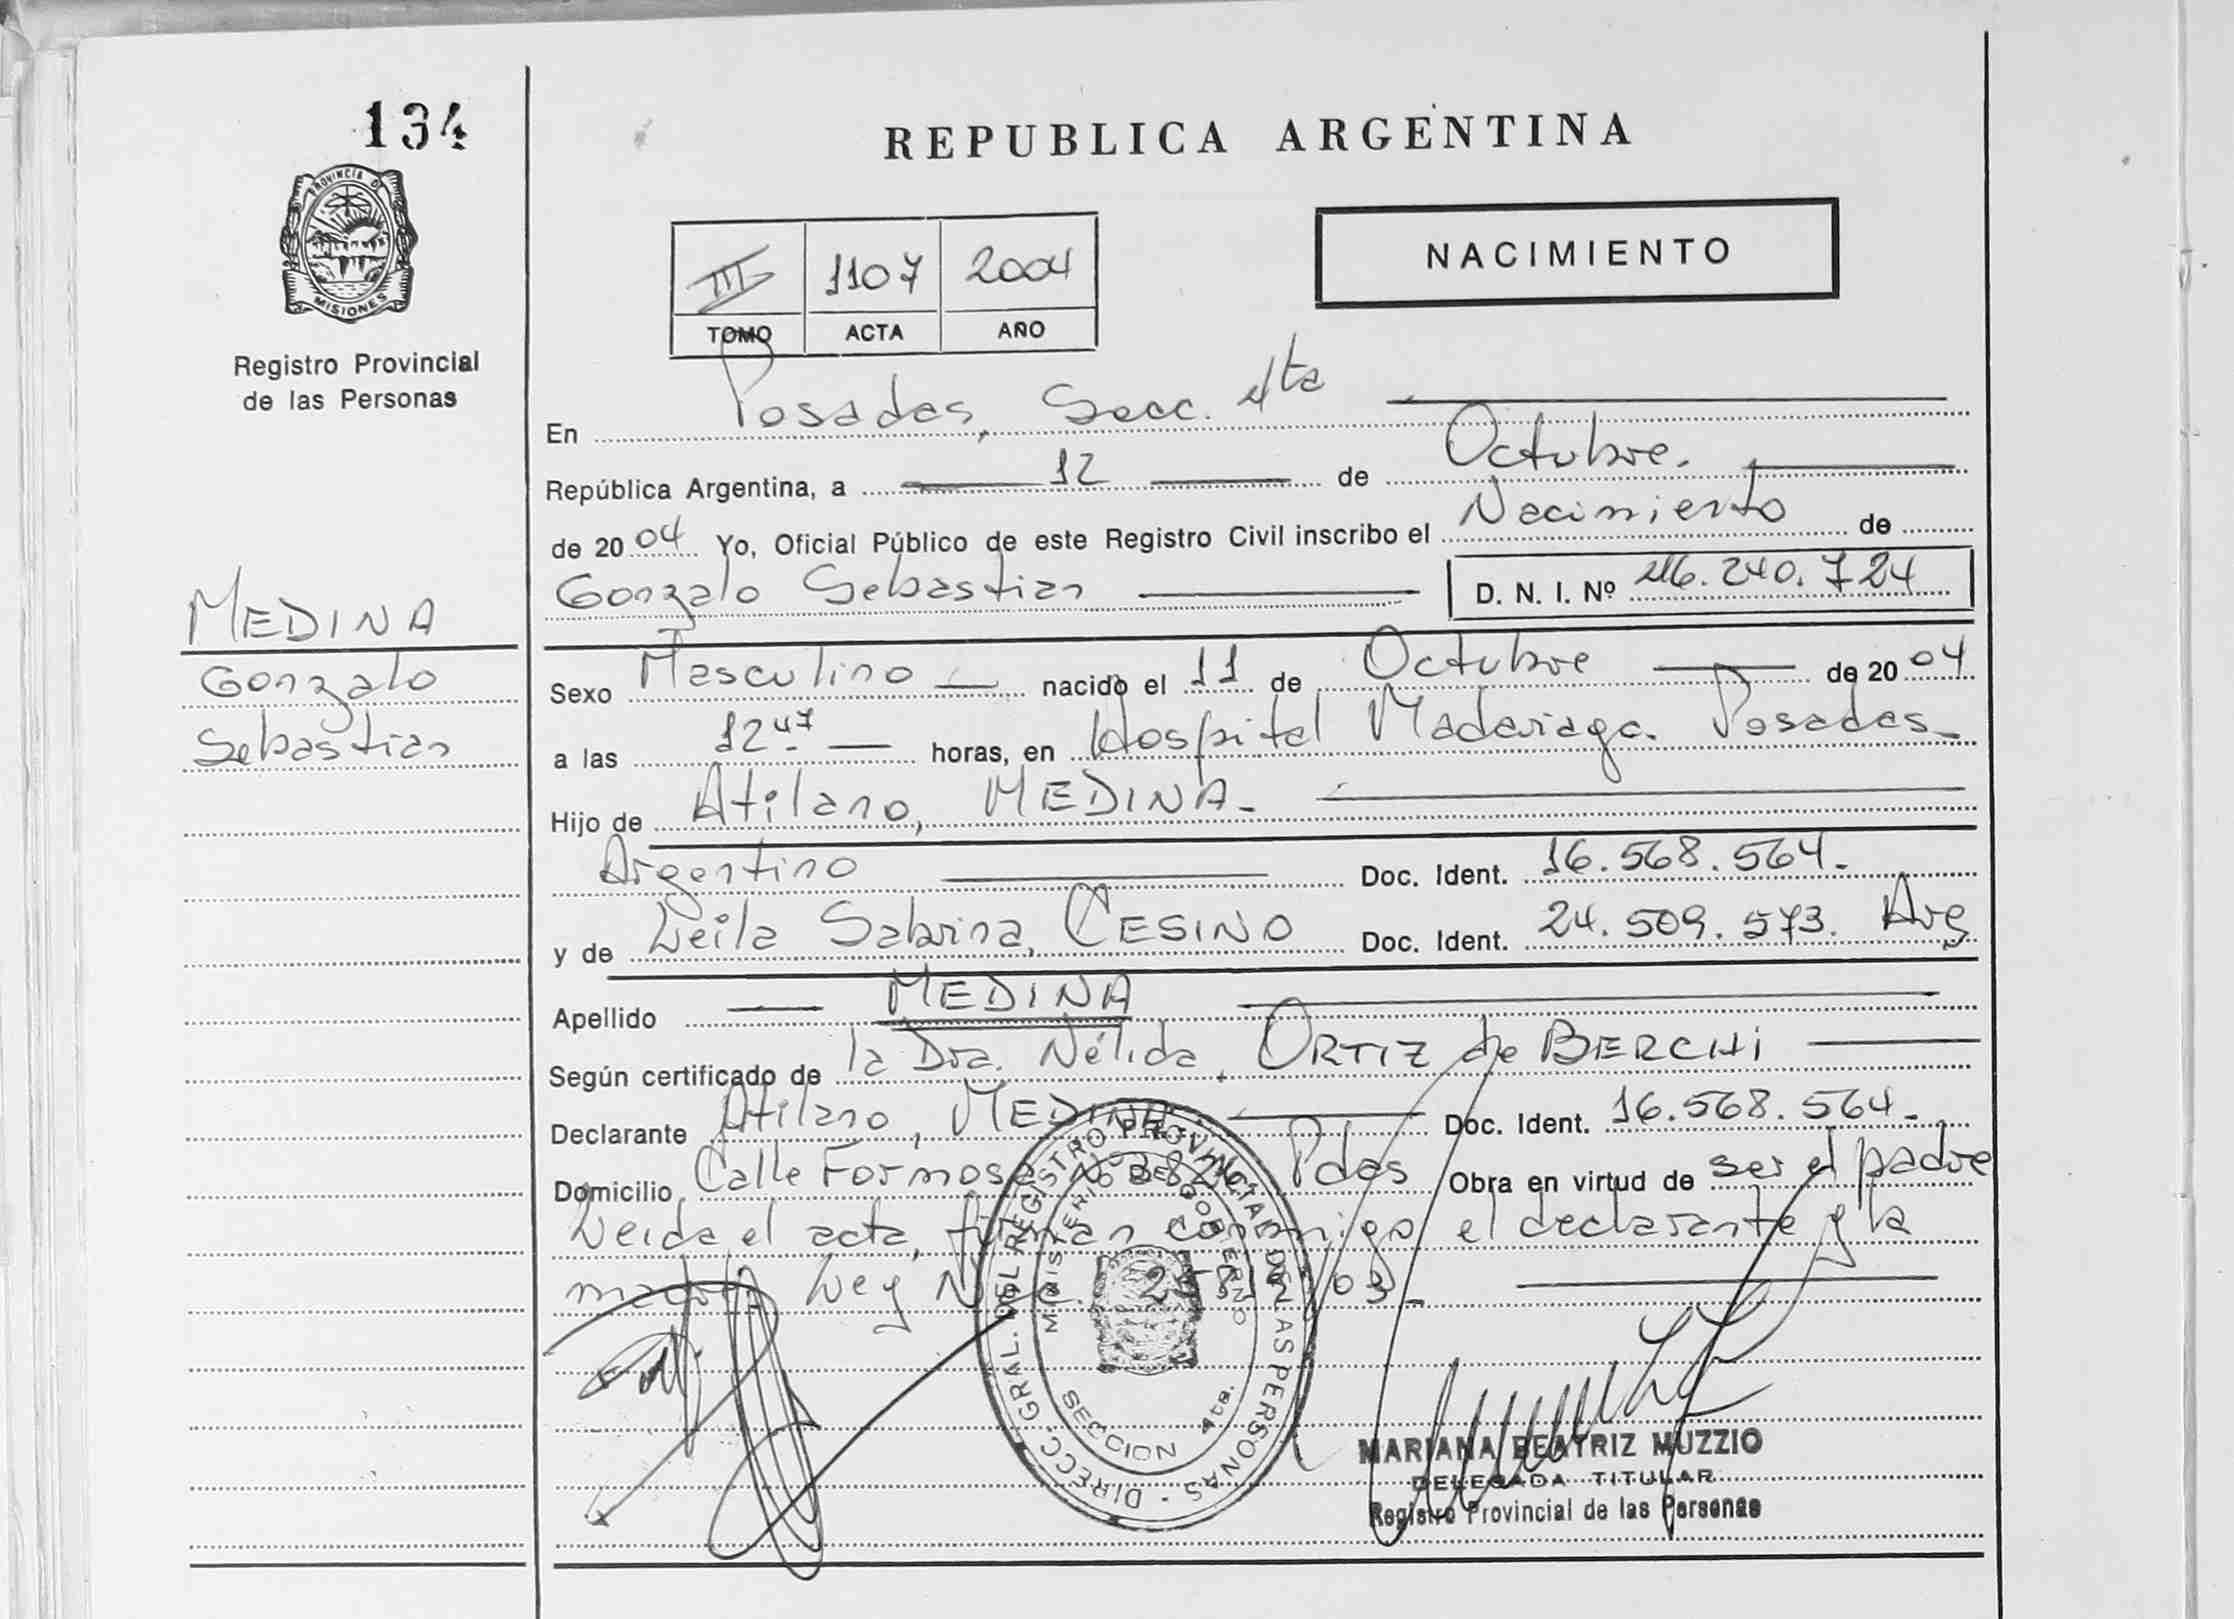 134
PROVINCIA D
MISIONES
Registro Provincial
de las Personas
MEDINA
Gonzalo
Sebastian
REPUBLICA ARGENTINA
III 1107 2004
TOMO ACTA AÑO
NACIMIENTO
En Posadas, Secc. 4ta
República Argentina, a 12 de Octubre.
de 2004 Yo, Oficial Público de este Registro Civil inscribo el Nacimiento de
Gonzalo Sebastian D. N. I. Nº 46.240.724
Sexo Masculino nacido el 11 de Octubre de 2004
a las 12 47 horas, en Hospital Madariaga. Posadas
Hijo de Atilano, MEDINA
Argentino Doc. Ident. 16.568.564.
y de Leila Sabrina, CESINO Doc. Ident. 24.509.573. Arg
Apellido MEDINA
Según certificado de la Dra. Nélida, ORTIZ de BERCHI
Declarante Atilano, MEDINA Doc. Ident. 16.568.564
Domicilio Calle Formosa Pdas Obra en virtud de ser el padre
Leida el acta, firman conmigo el declarante y la
madre. Ley
DIRECC. GRAL. DEL REGISTRO PROVINCIAL DE LAS PERSONAS
MINISTERIO DE GOBIERNO
SECCION 4ta.
MARIANA BEATRIZ MUZZIO
DELEGADA TITULAR
Registro Provincial de las Personas